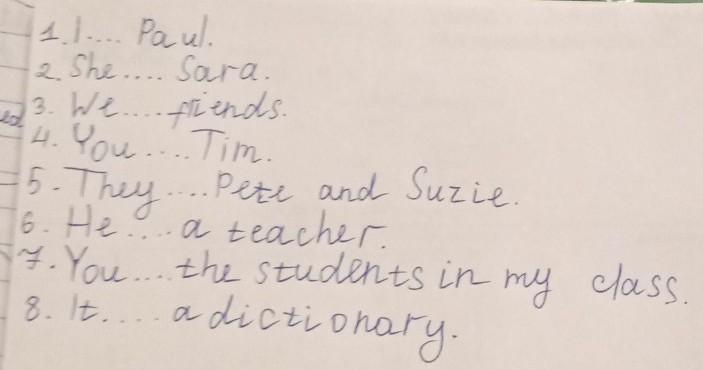 1. I.... Paul.
2. She.... Sara.
3. We.... friends.
4. You.... Tim.
5. They.... Pete and Suzie.
6. He.... a teacher.
7. You... the students in my class.
8. It.... a dictionary.